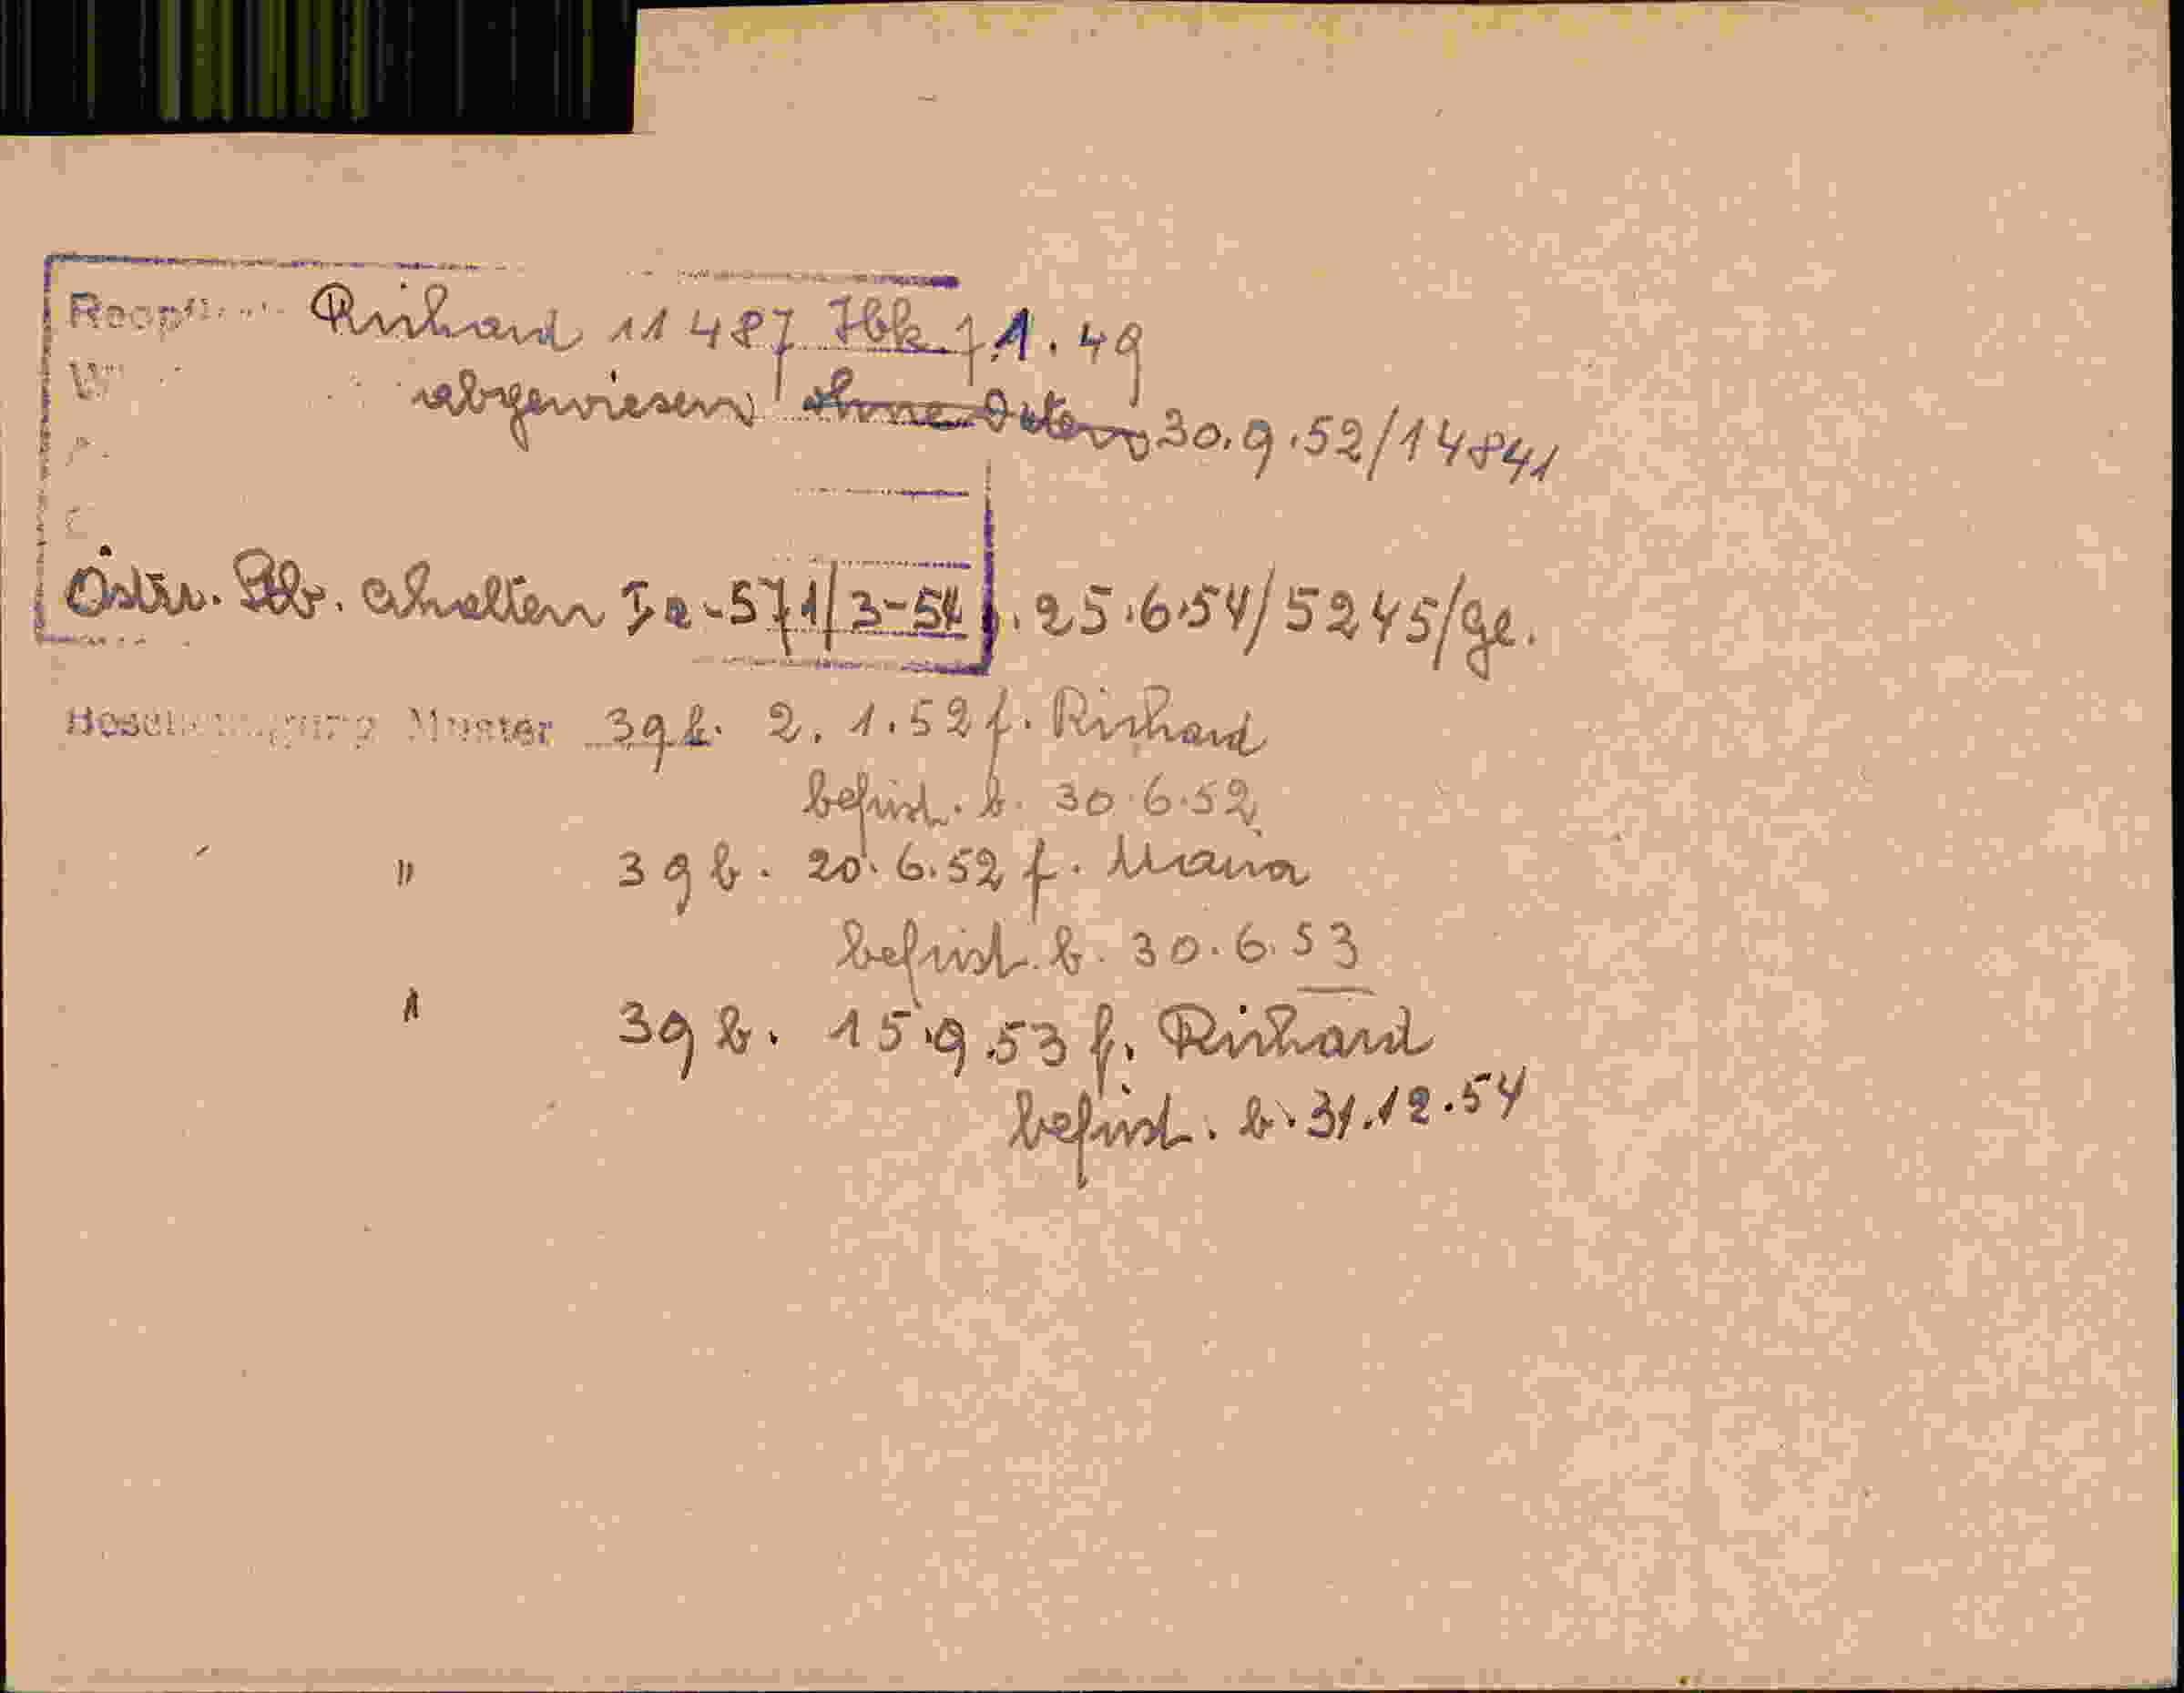 Richard 11487 Ibk. 7.1.49
abgewiesen ohne Daten 30.9.52/14841
Östr. Stb. erhalten Ia-571/3-54 v. 25.6.54/5245/Ge.
Bescheinigung Muster 39 b. 2.1.52 f. Richard
befrist. b. 30.6.52
" 39 b. 20.6.52 f. Maria
befrist. b. 30.6.53
" 39 b. 15.9.53 f. Richard
befrist. b. 31.12.54